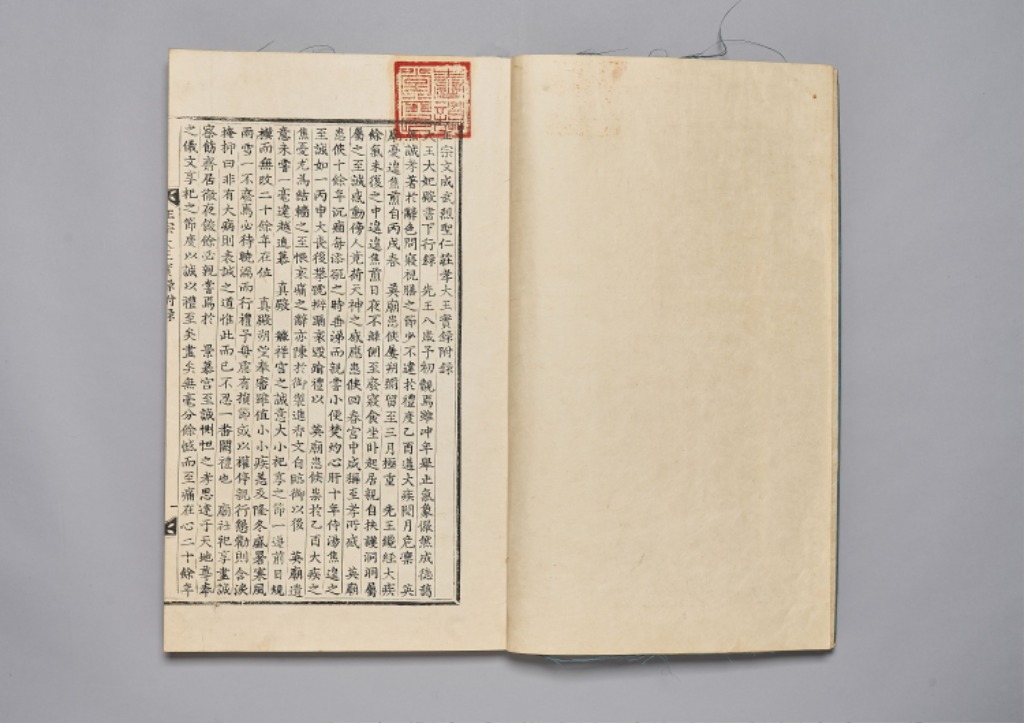 宗文成武烈聖仁莊孝大王實錄附錄
王大妃殿書下行錄 先王八歲予初覩焉雖冲年擧止氣象儼然成德藹
誠孝著於辭色問寢視膳之節少不違於禮度乙酉遘大疾閱月危稟 英
廟憂遑焦煎自丙戌春 英廟患候屢朔彌留至三月極重 先王纔經大疾
餘氣未復之中遑遑焦煎日夜不離側至廢寢食坐卧起居親自扶護洞洞屬
屬之至誠感動傍人竟荷天神之感應患候回春宮中咸稱至孝所感 英廟
患候十餘年沉痼每添之時垂涕而親嘗小便焚灼心肝十年侍湯焦遑之
至誠如一丙申大喪後攀號擗踊哀毁踰禮以 英廟患候祟於乙酉大疾之
焦憂尤爲結轖之至恨哀痛之辭亦陳於御製進香文自臨御以後 英廟遺
意未嘗一毫違越追慕 眞殿 祥宮之誠意大小祀享之節一遵前日規
模而無改二十餘年在位 眞殿朔望奉審雖值小小疾恙及隆冬盛暑寒風
雨雪一不廢焉必待曉漏而行禮予每慮有損節或以權停親行懇勸則含淚
掩抑曰非有大病則衷誠之道惟此而已不忍一番闕禮也 廟社祀享盡誠
察飭齋居徹夜餘必親嘗焉於 景慕宮至誠惻怛之孝思達于天地尊奉
之儀文享祀之節度以誠以禮至矣盡矣無毫分餘憾而至痛在心二十餘年
正宗大王實錄附錄 一